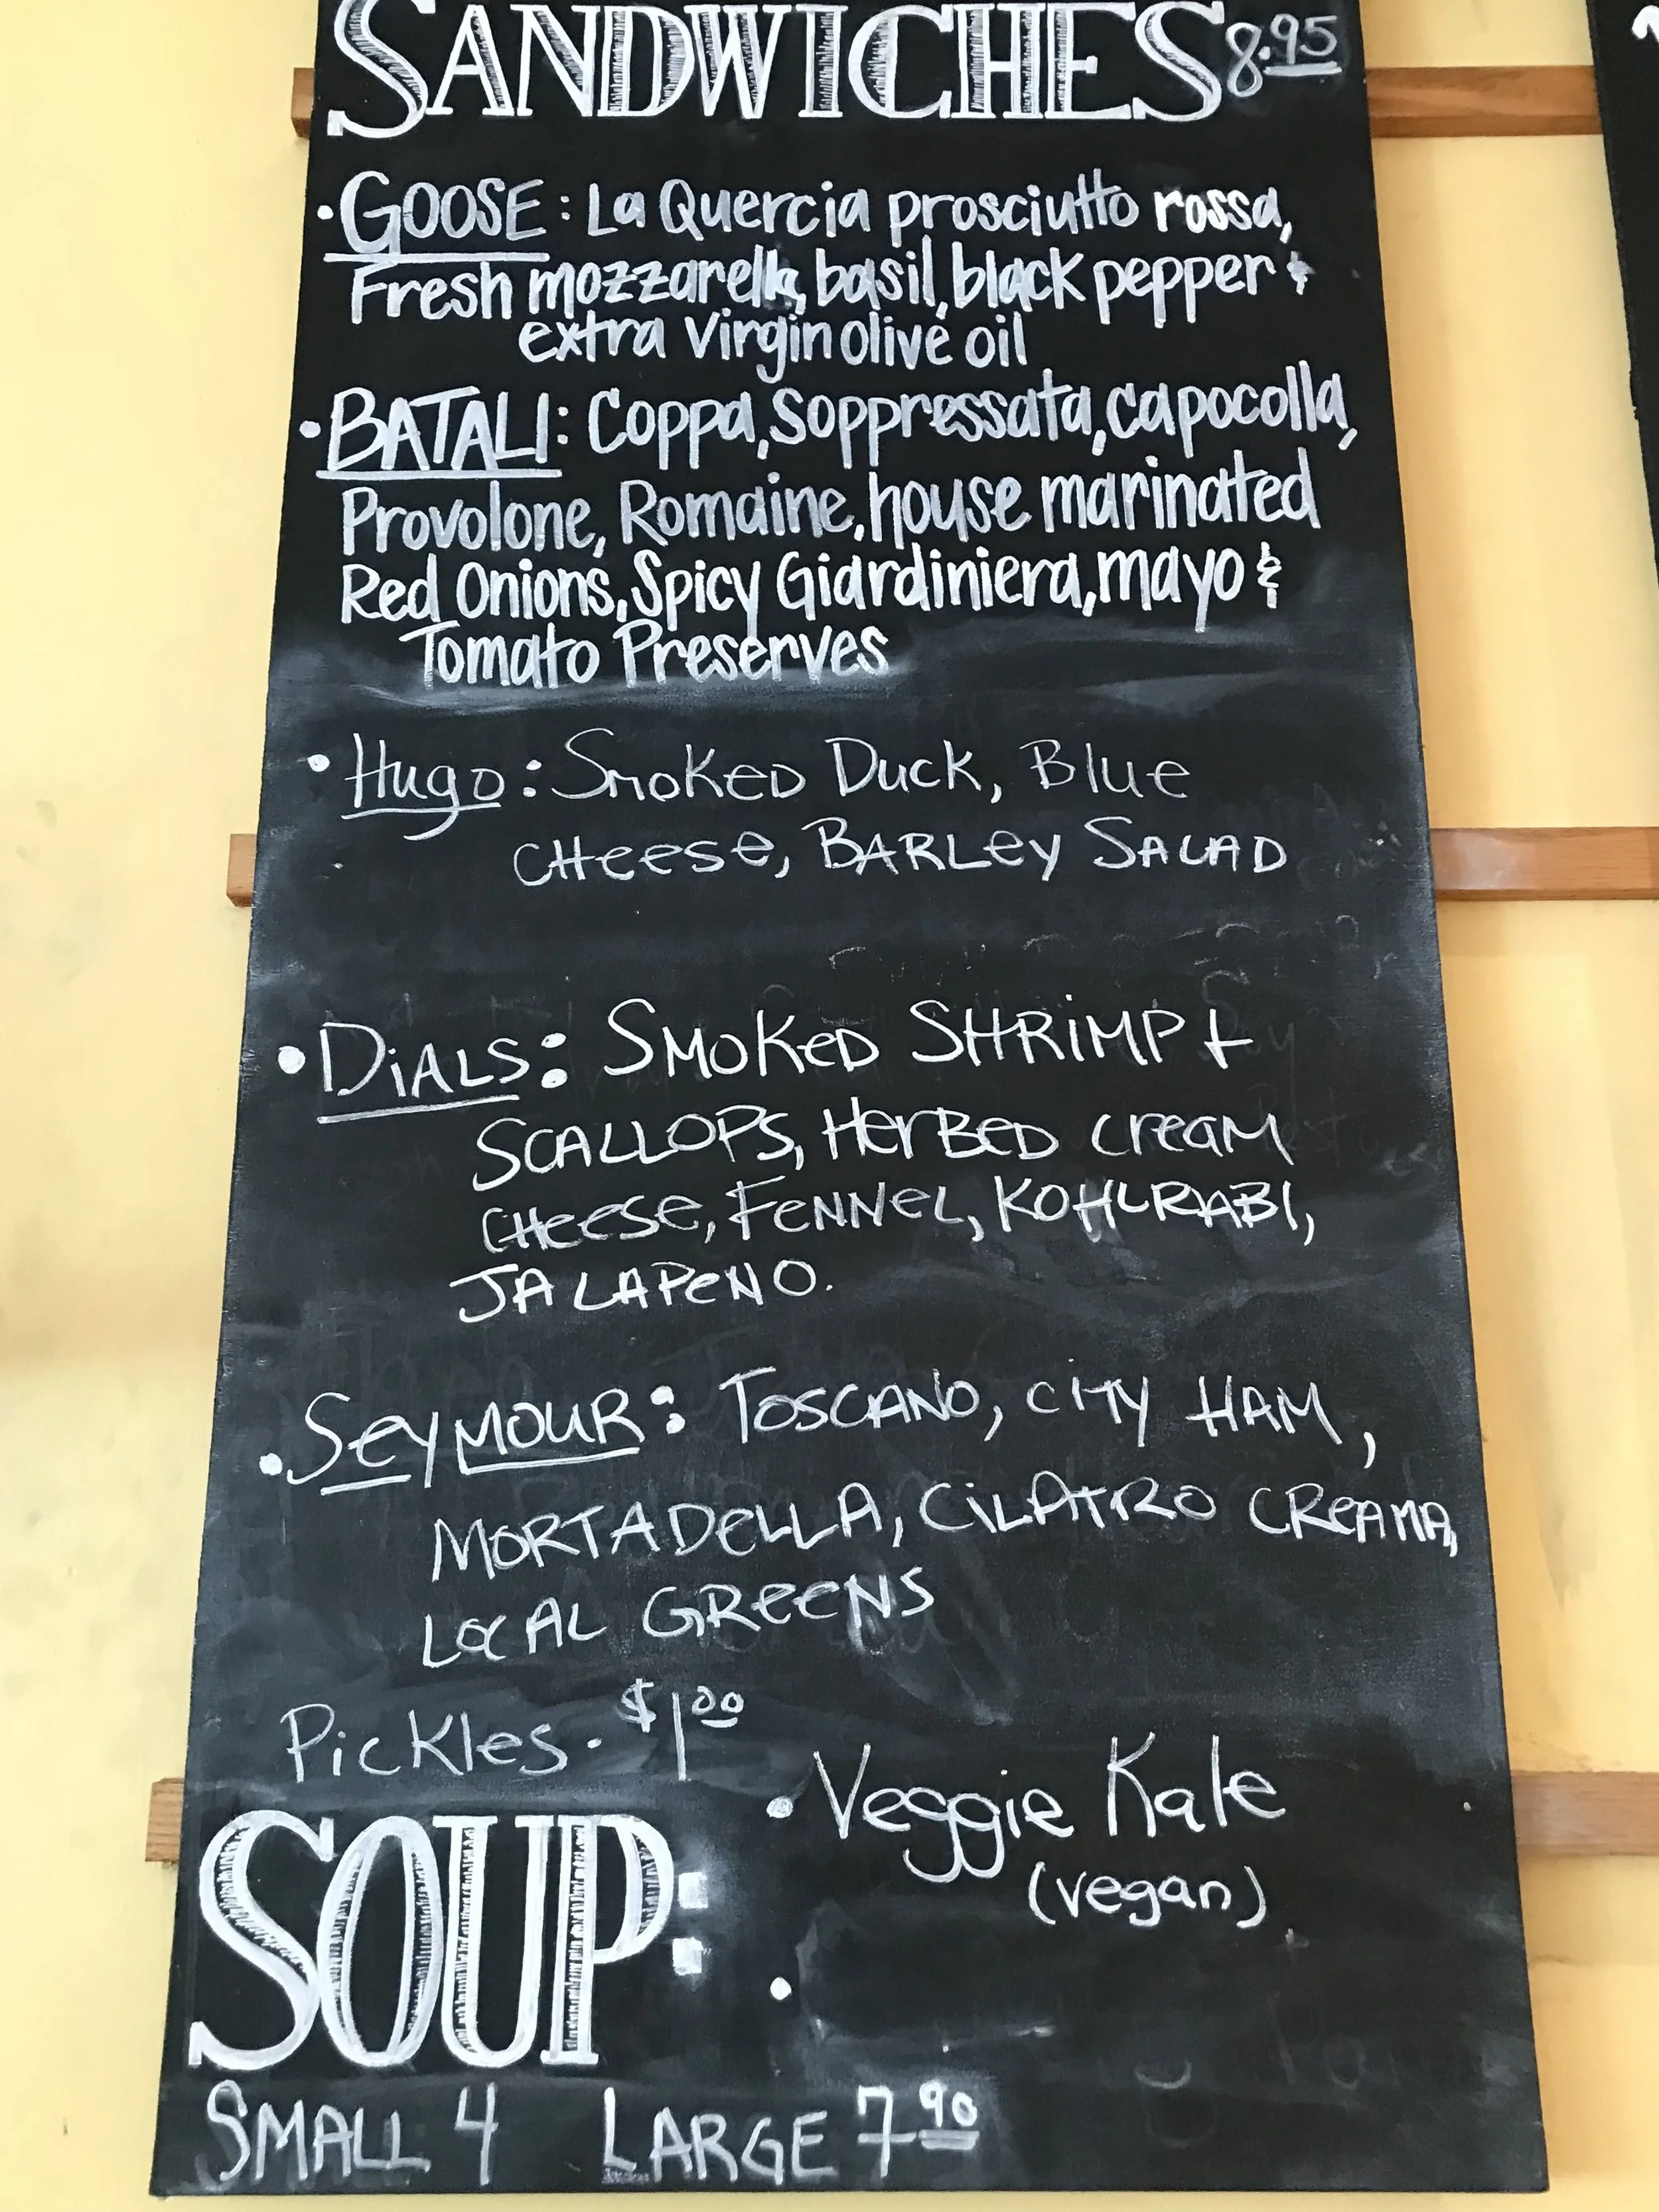 SANDWICHES 8.95
• GOOSE: La Quercia prosciutto rossa,
Fresh mozzarella, basil, black pepper &
extra virgin olive oil
• BATALI: Coppa, Soppressata, capocolla,
Provolone, Romaine, house marinated
Red Onions, Spicy Giardiniera, mayo &
Tomato Preserves
• Hugo: Smoked Duck, Blue
Cheese, Barley Salad
• DiALS: SMOKeD SHRiMP +
SCALLOPS, HerBeD cream
CHeese, FeNNeL, KOHLRABI,
JALAPeNO.
• SeyMOUR: TOSCANO, CiTY HAM,
MORTADeLLA, CiLATRO CReAMA,
LOCAL GReeNS
Pickles. $1.00
SOUP:
• Veggie Kale
(vegan)
•
SMALL 4 LARGE 7.90